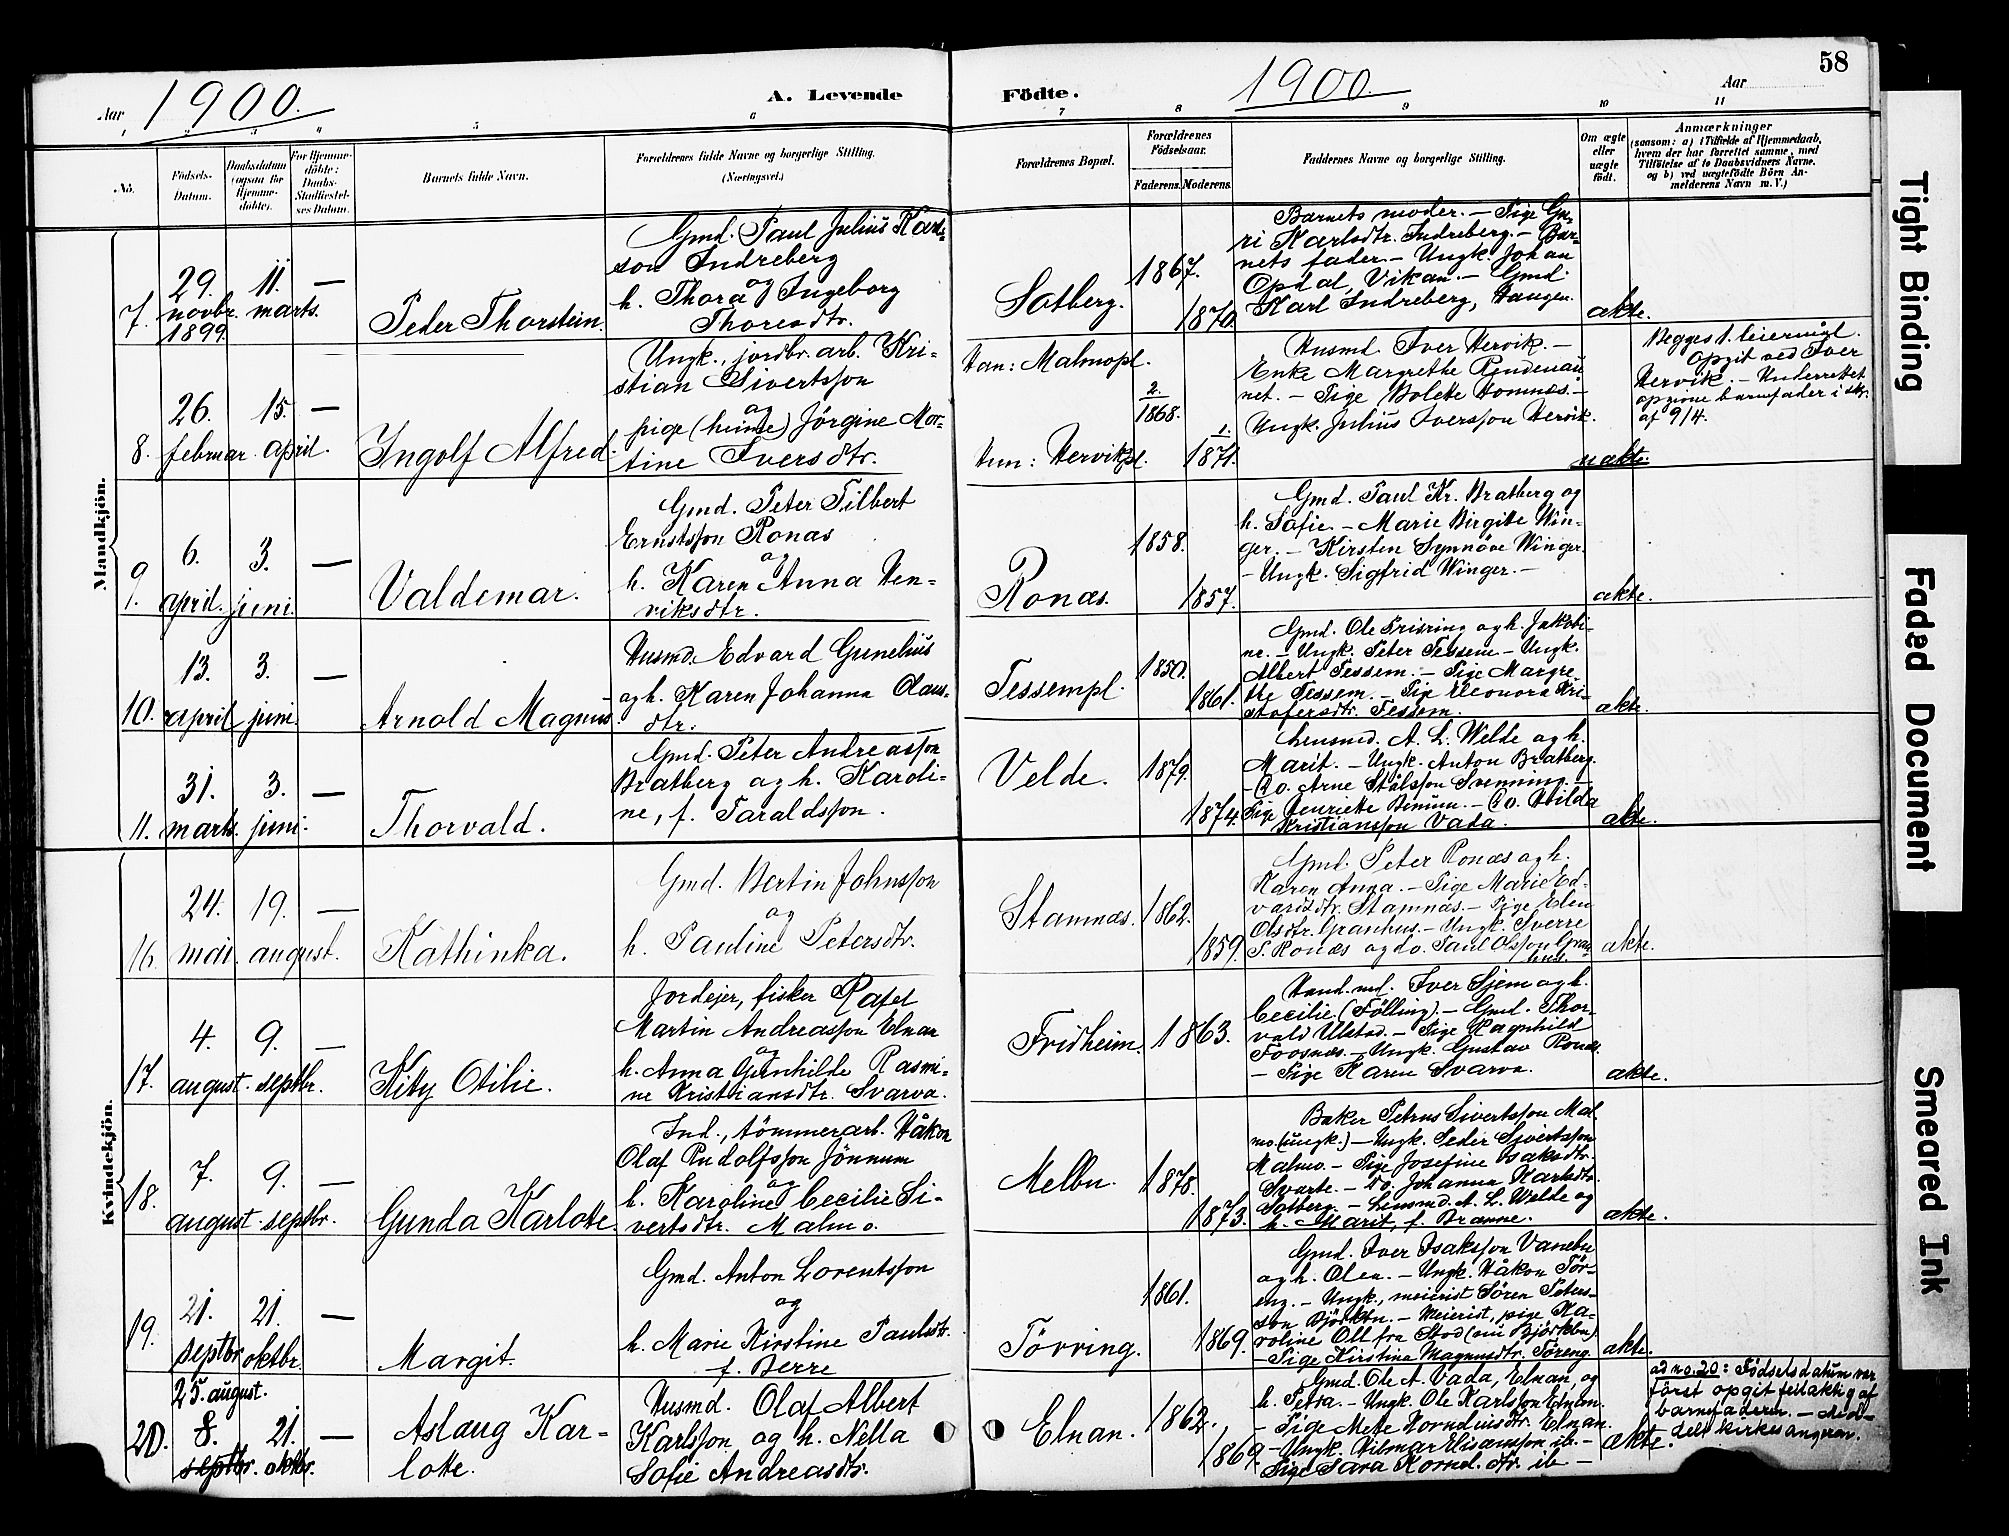 58
Aar 1900.
A. Levende
Födte.
1900.
Aar
1
3
4
5
6
7
8
9
10
11
No.
Födsels-
Datum.
Daabsdatum
(ogsaa for
Hjemme-
döbte).
For Hjemme-
döbte:
Daabs-
Stadfæstel-
ses Datum.
Barnets fulde Navn.
Forældrenes fulde Navne og borgerlige Stilling.
(Næringsvei.)
Forældrenes Bopæl.
Forældrenes
Födselsaar.
Faderens. Moderens.
Faddernes Navne og borgerlige Stilling.
Om ægte
eller
uægte
födt.
Anmærkninger
(saasom: a) i Tilfælde af Hjemmedaab,
hvem der har forrettet samme, med
Tilföielse af to Daabsvidners Navne.
og b) ved uægtefödte Börn An-
melderens Navn m. V.)
Mandkjön.
7.
29.
novbr.
1899.
11.
marts.
—
Peder Thorstein.
Gmd. Paul Julius Karl-
son Indreberg
og
h. Thora Ingeborg
Thoresdtr.
Solberg.
1867.
1870.
Barnets moder. — Pige Gu-
ri Karlsdtr. Indreberg. — Bar-
nets fader. — Ungk. Johan
Opdal, Vikan. — Gmd.
Karl Indreberg, Haugen.
ækte.
8.
26.
februar.
15.
april.
—
Ingolf Alfred.
Ungk., jordbr. arb. Kri-
stian Sivertsson
og
pige (hjeme) Jörgine Mar-
tine Iversdtr.
Han: Malmopl.
Hun: Hervikpl.
2.
1868.
1.
1871.
Husmd. Iver Hervik. —
Enke Margrethe Ryndenau
net. — Pige Bolette Homnæs. —
Ungk. Julius Iversson Hervik.
uækte.
Begges 1. leiermaal.
Opgit ved Iver
Hervik. — Underrettet
opgivne barnefader i skr.
af 9/4.
9.
6.
april.
3.
juni.
—
Valdemar.
Gmd. Peter Tilbert
Ernstsson Ronæs
og
h. Karen Anna Hen-
riksdtr.
Ronæs.
1858.
1857.
Gmd. Paul Kr. Bratberg og
h. Sofie. — Marie Birgitte Win-
ger. — Kirsten Synnöve Winger.
— Ungk. Sigfrid Winger. —
ækte.
10.
13.
april
3.
juni.
—
Arnold Magnus.
Husmd. Edvard Gunelius
og h. Karen Johanna Olaus-
dtr.
Tessempl.
1850.
1861.
Gmd. Ole Frisring og h. Jakobi-
ne. — Ungk. Peter Tessem — Ungk.
Albert Tessem. — Pige Margre-
the Tessem. — Pige Eleonora Kri-
stofersdtr. Tessem.
ækte.
11.
31.
marts.
3.
juni.
—
Thorvald.
Gmd. Peter Andreasson
Bratberg og h. Karoli-
ne, f. Taraldsson.
Velde.
1879.
1874.
Lensmd. A. L. Welde og h.
Marit. — Ungk. Anton Bratberg.
— Do. Arne Stålsson Svenning.
Pige Henriette Benum. — Do. Hilda
Kristiansson Vada.
ækte.
Kvindekjön.
16.
24.
mai.
19.
august.
—
Kathinka.
Gmd. Bertin Johnsson
og
h. Pauline Petersdtr.
Stamnæs.
1862.
1859.
Gmd. Peter Ronæs og h.
Karen Anna. — Pige Marie Ed-
vardsdtr. Stamnæs. — Pige Elen
Olsdtr. Granhus. — Ungk. Sverre
P. Ronæs og do. Paul Olsson Gran-
hus.
ækte.
17.
4.
august.
9.
septbr.
—
Kitty Otilie.
Jordejer, fisker Rafel
Martin Andreasson Elnan
og
h. Anna Gunhilde Rasmi-
ne Kristiansdtr. Svarva.
Fridheim.
1863.
Hand.md. Iver Sjem og h.
Cecilie (Fölling). — Gmd. Thor-
vald Ulstad. — Pige Ragnhild
Foosnæs. — Ungk. Gustav Ronæs.
— Pige Karen Svarva.
ækte.
18.
7.
august.
9.
septbr.
—
Gunda Karlotte.
Ind., tömmerarb. Håkon
Olaf Rudolfsson Jönnum
og
h. Karoline Cecilie Si-
vertsdtr. Malmo.
Melbu.
1878.
1873.
Baker Petrus Sivertsson Mal
mo. (ungk.) — Ungk. Peder Sjvertsson
Malmo. — Pige Josefine Isaksdtr.
Svarte. — Do. Johanna Karlsdtr.
Solberg. — Lensmd. A. L. Welde og
h. Marit, f. Brænne.
ækte.
19.
21.
septbr.
21.
oktbr.
—
Margit.
Gmd. Anton Lorentsson
og
h. Marie Kirstine Paulsdtr.
f. Berre
Törring.
1861.
1869.
Gmd. Iver Isaksson Vanebu
og h. Olea. — Ungk. Håkon Tör-
eng. — Ungk., meierist Sören Peters-
son Bjórkbn. — Meierist, pige Ka-
roline Oll fra Stod (nu Bjórkbn)
— Pige Kirstina Magnusdtr. Töreng.
ækte.
20.
25. august.
8.
septbr.
21.
oktbr.
—
Aslaug Kar-
lotte.
Husmd. Olaf Albert
Karlsson og h. Nella
Sofie Andreasdtr.
Elnan.
1862.
1869.
Gmd. Ole A. Vada, Elnan, og
h. Petra. — Ungk. Ole Karlsson Elnan.
— Pige Mette Korneliusdtr. Elnan.
— Ungk. Hilmar Elisæusson ib. —
Pige Sara Kornel. dtr. ib —
ækte.
ad no. 20: Födselsdatum var
först opgit feilaktig af
barnefaderen. — Med-
delt kirkesangeren.
Tight Binding
Faded Document
Smeared Ink